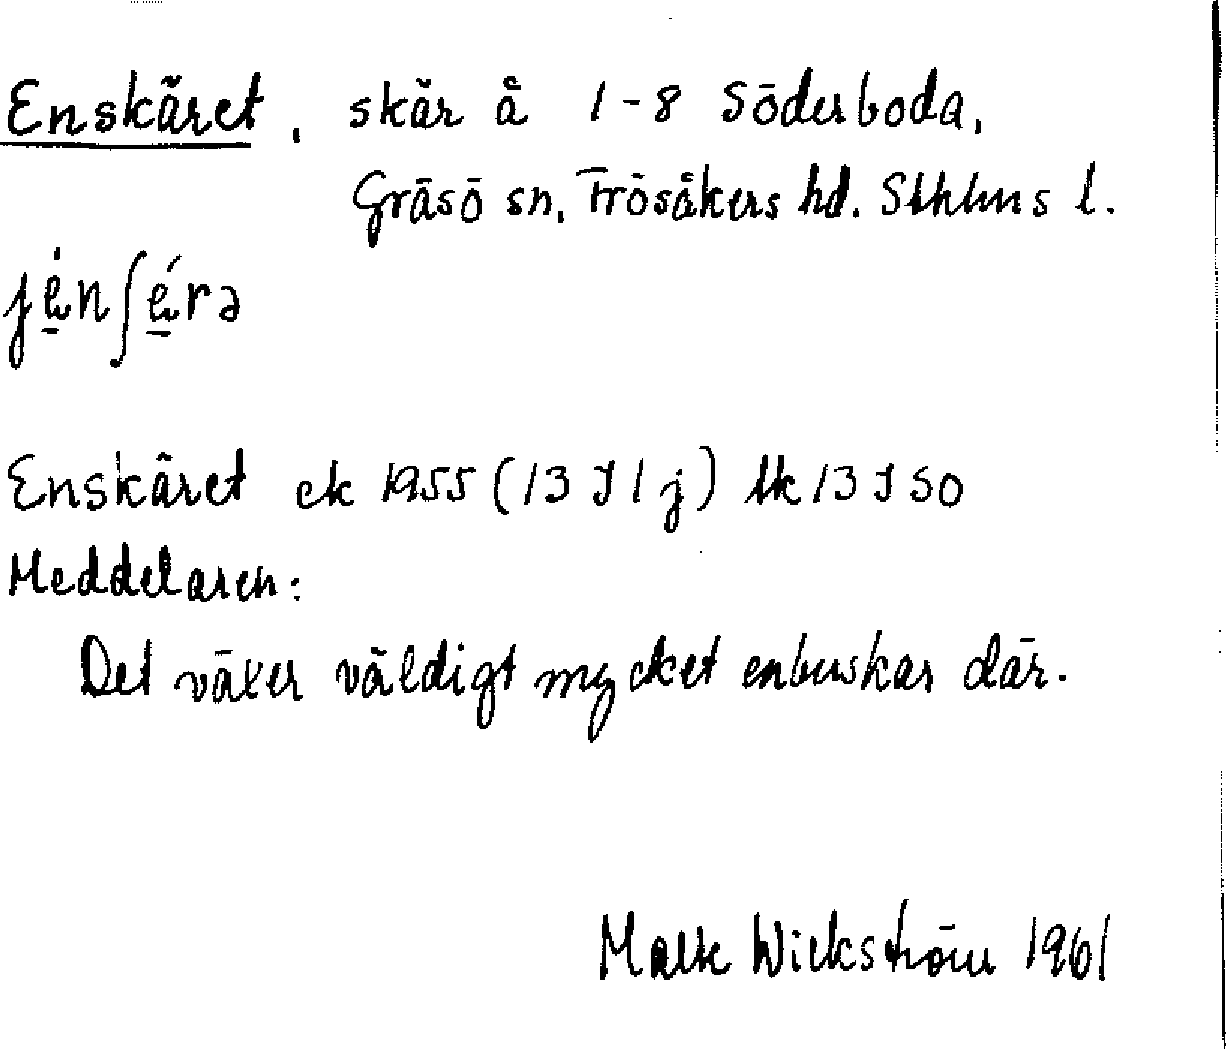 Enskäret, skär å 1-8 Söderboda,
Gräsö sn, Frösåkers hd. Sthlms l.
jén∫érə
Enskäret ek 1955 (13 I 1 j) tk 13 I SO
Meddelaren:
Det växer väldigt mycket enbuskar där.
Malte Wickström 1961